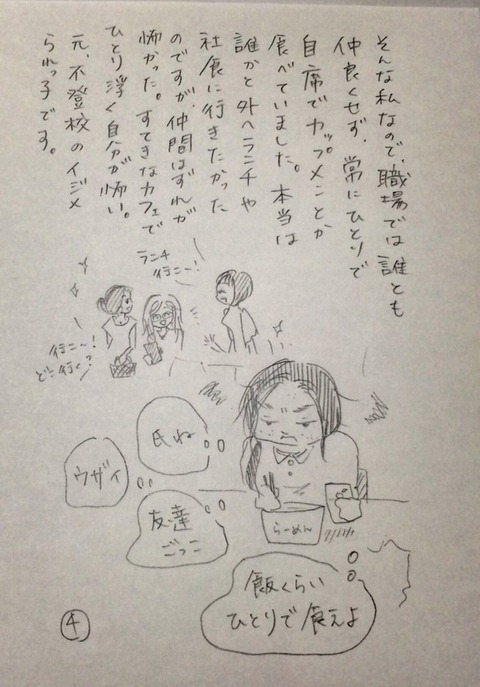 そんな私なので、職場では誰とも
仲良くせず、常にひとりで
自席でカップメンとか
食べていました。本当は
誰かと外へランチや
社食に行きたかった
のですが、仲間はずれが
怖かった。すてきなカフェで
ひとり浮く自分が怖い。
元、不登校のイジメ
られっ子です。
ランチ
行こ〜!
行こ〜!
どこ行く?
氏ね
ウザイ
友達
ごっこ
らーめん
飯くらい
ひとりで食えよ
④